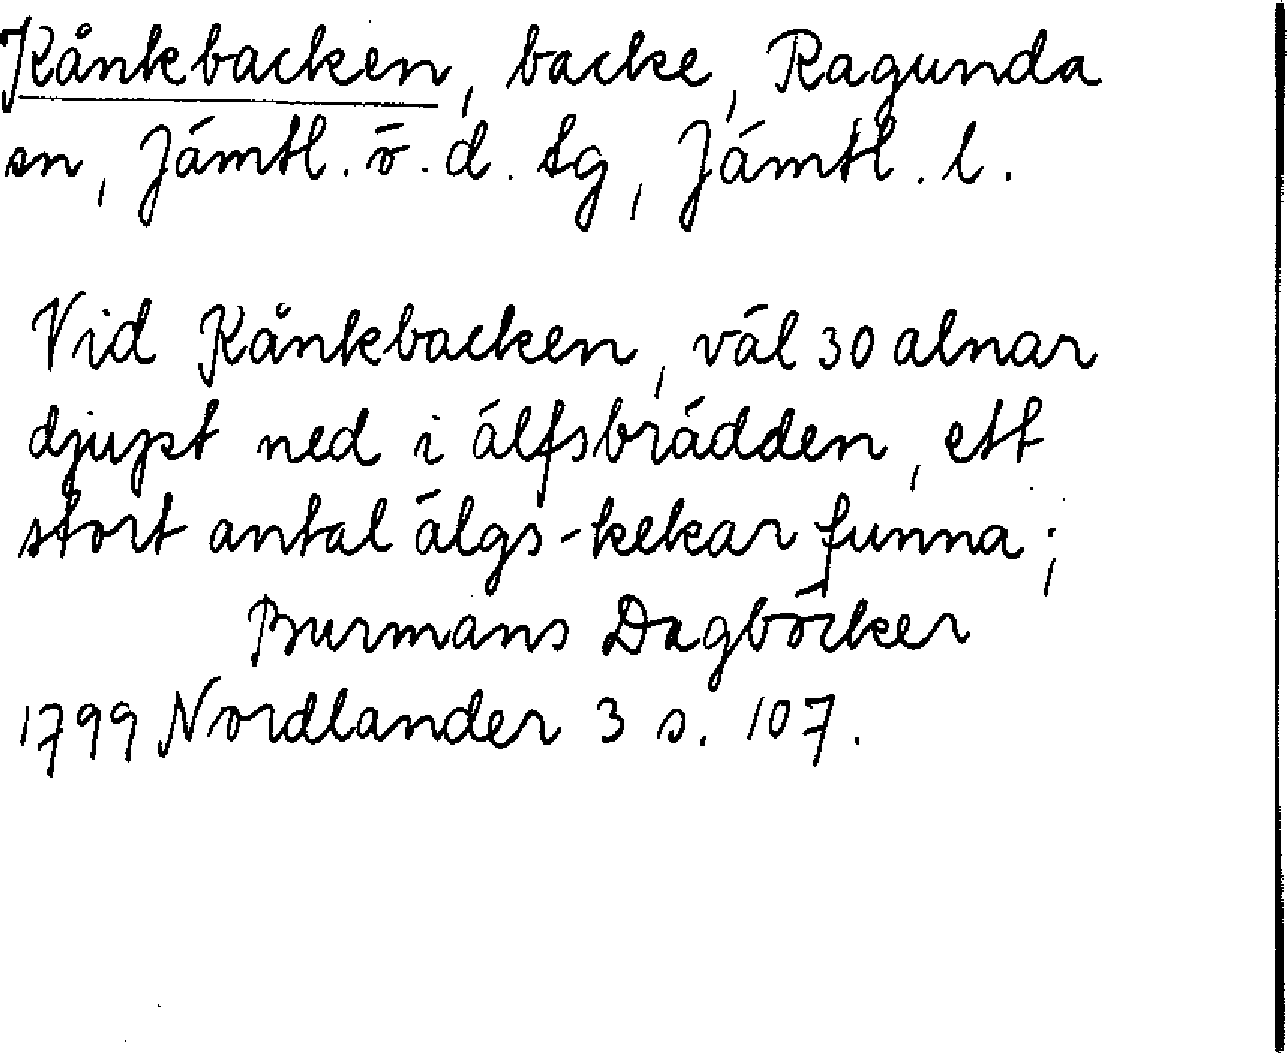 Kånkbacken, backe, Ragunda
sn, Jämtl. ö. d. tg, Jämtl. l.
Vid Kånkbacken, väl 30 alnar
djupt ned i älfsbrädden, ett
stort antal älgs-kekar funna;
Burmans Dagböcker
1799 Nordlander 3 s. 107.